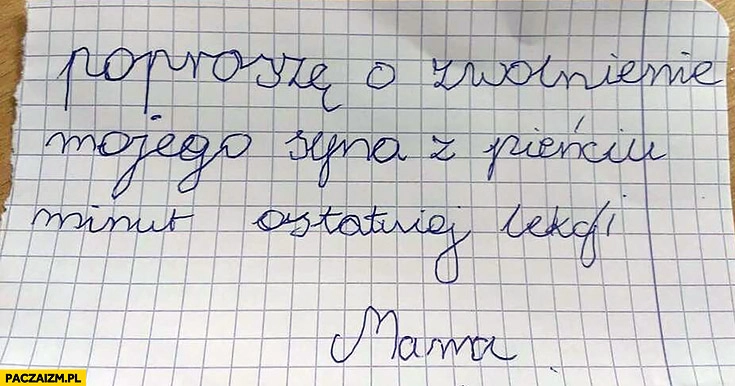 poproszę o zwolnienie
mojego syna z pieńciu
minut ostatniej lekcji
Mama
PACZAIZM.PL